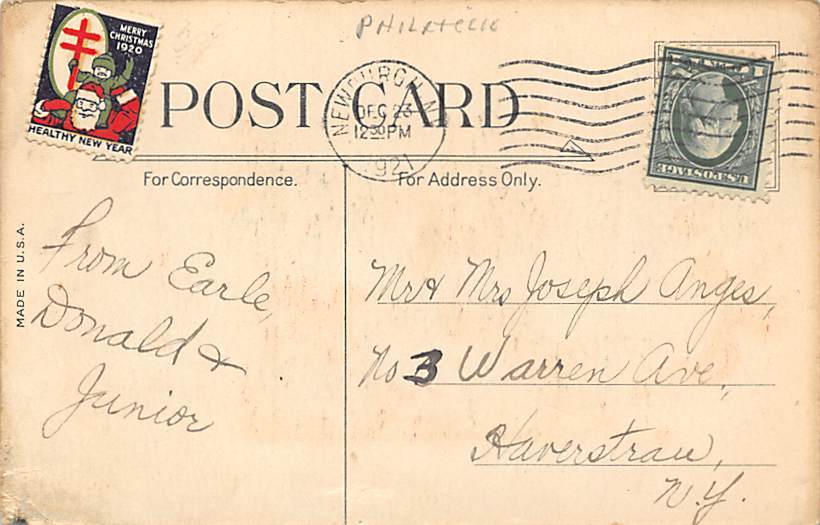 PHILATELIC
MERRY
CHRISTMAS
1920
HEALTHY NEW YEAR
POST CARD
NEWBURGH, N.
DEC 23
12 30 PM
1921
U.S. POSTAGE
For Correspondence.
For Address Only.
MADE IN U.S.A.
From Earle,
Donald &
Junior
Mr & Mrs Joseph Anges,
No 3 Warren Ave,
Haverstraw,
N.Y.